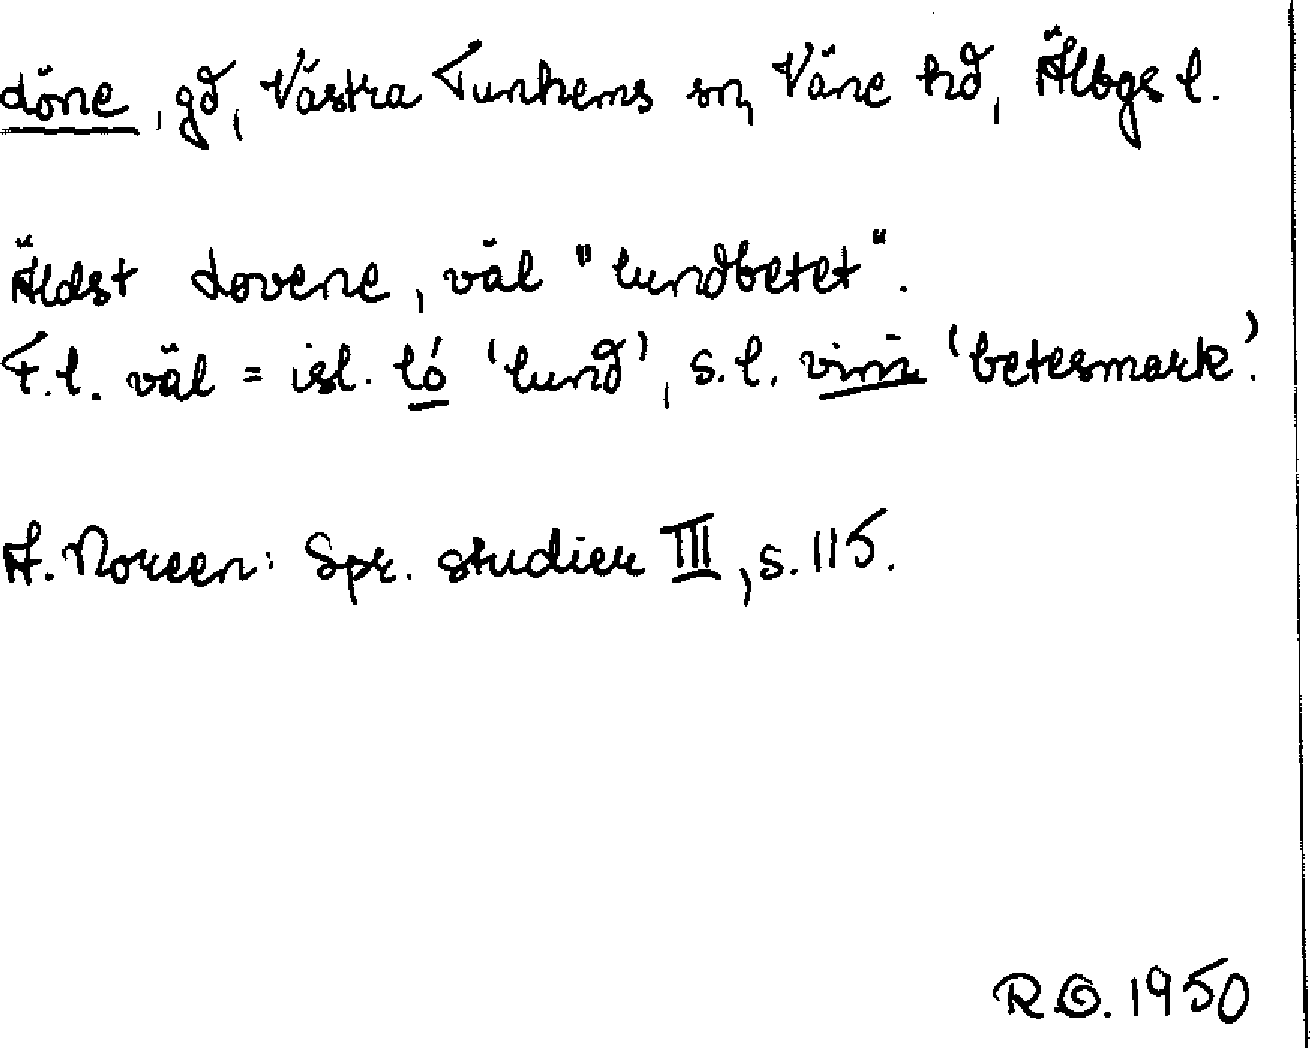 Löne, gd, Västra Tunhems sn, Väne hd, Älbgs l.
Äldst Lovene, väl "lundbetet".
F.l. väl = isl. ló 'lund', s.l. vini 'betesmark'.
A. Noreen: Spr. studier III, s. 115.
R Ö. 1950